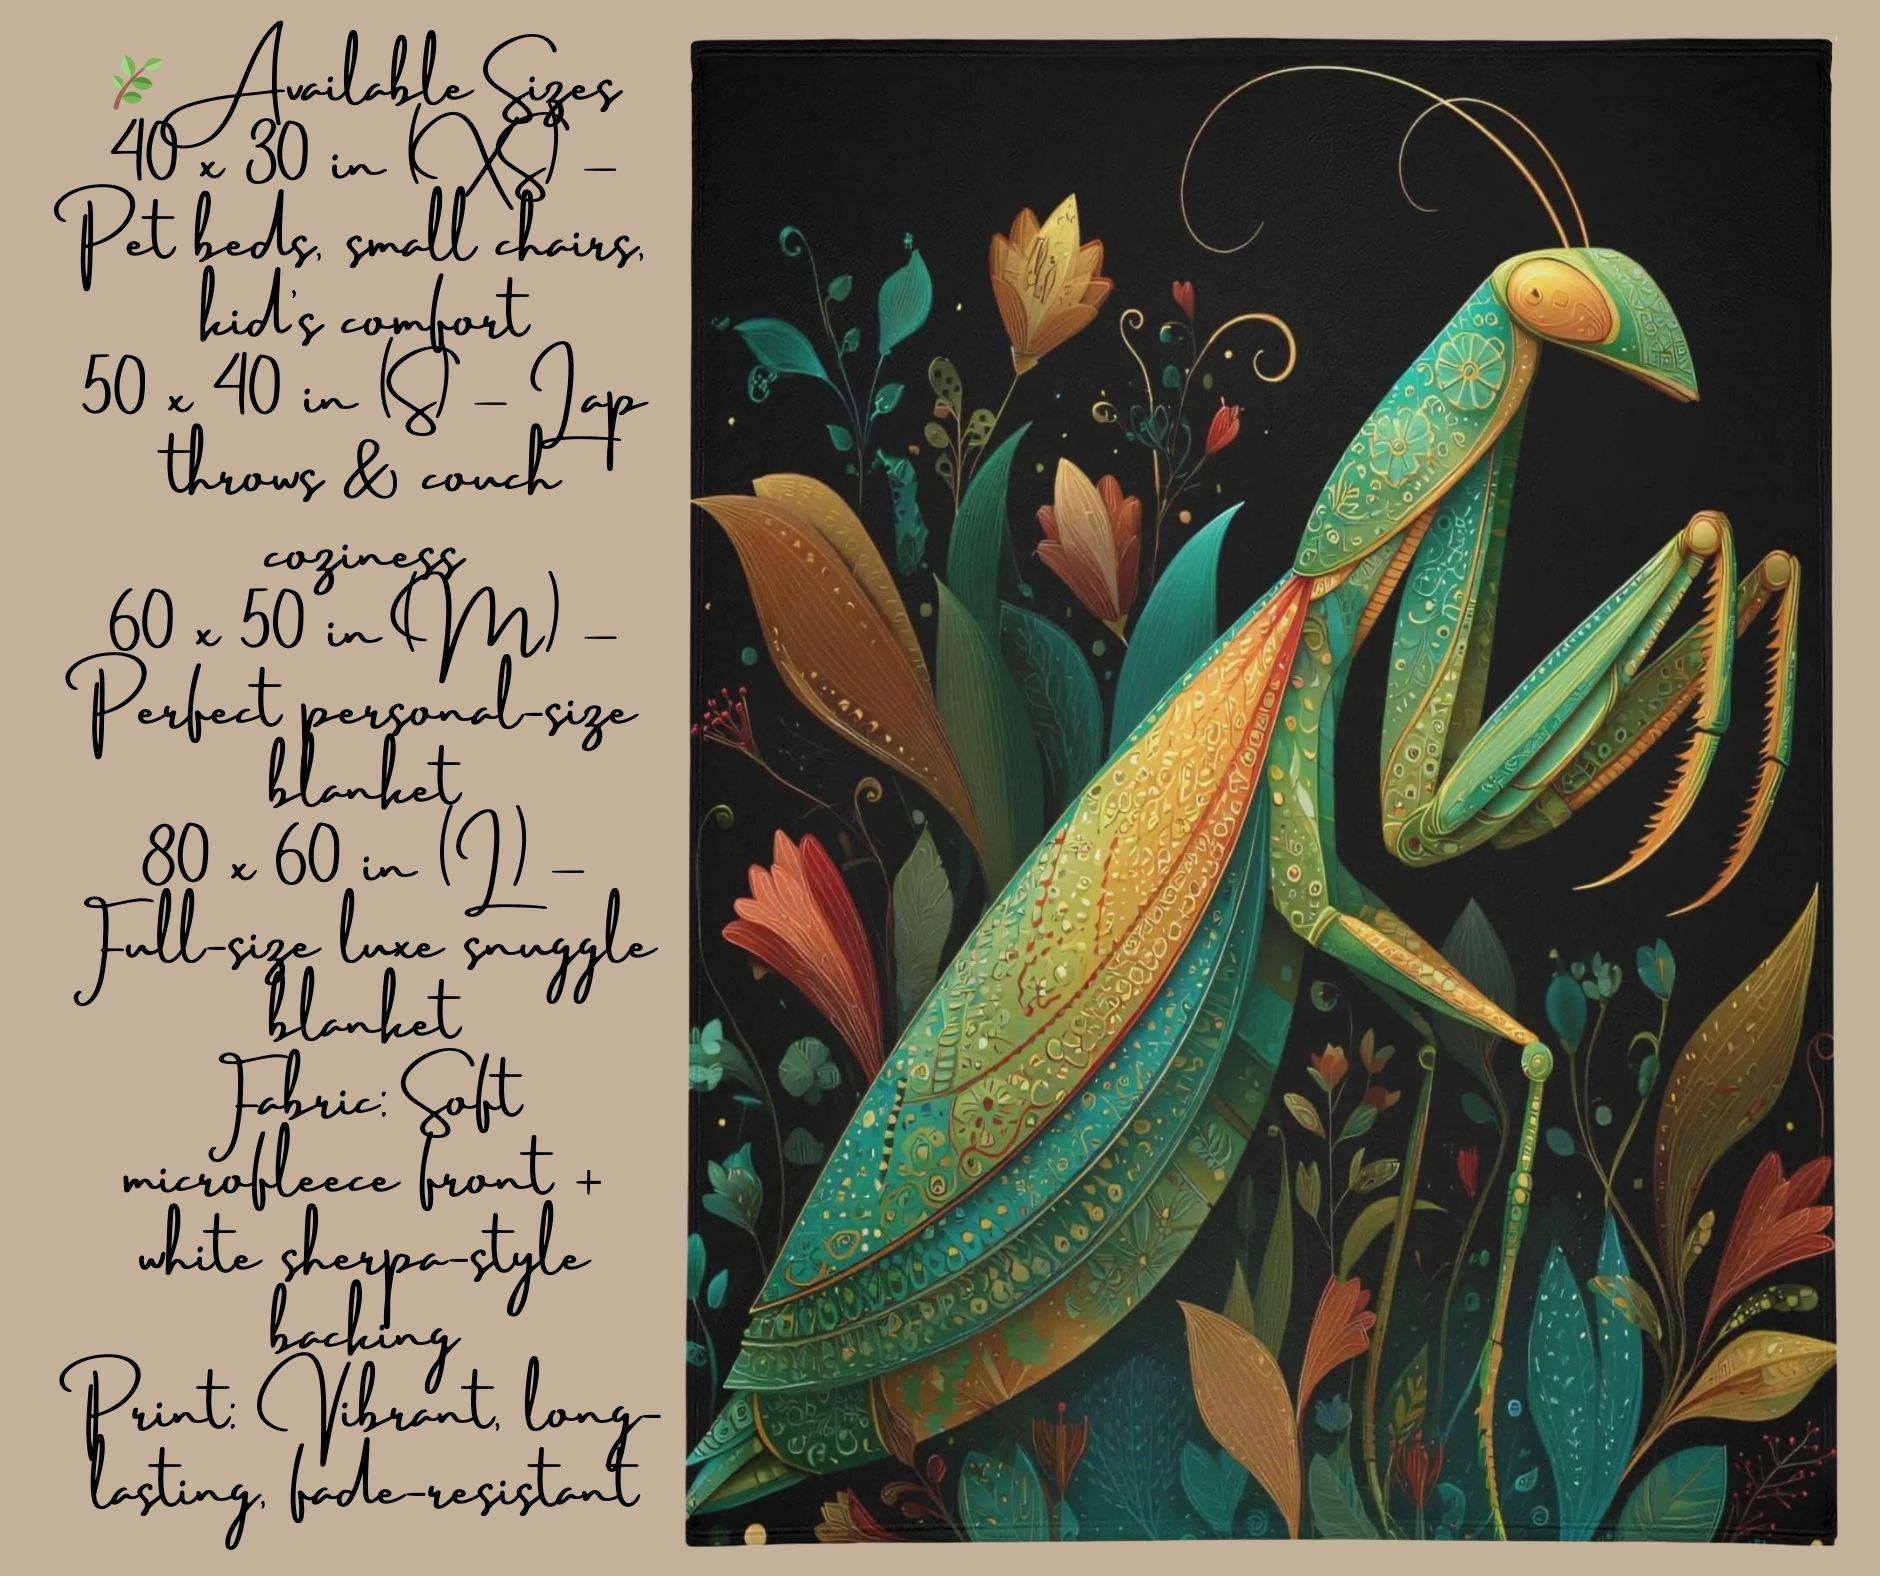 Available Sizes
40 x 30 in (XS) –
Pet beds, small chairs,
kid's comfort
50 x 40 in (S) – Lap
throws & couch
coziness
60 x 50 in (M) –
Perfect personal-size
blanket
80 x 60 in (L) –
Full-size luxe snuggle
blanket
Fabric: Soft
microfleece front +
white sherpa-style
backing
Print: Vibrant, long-
lasting, fade-resistant